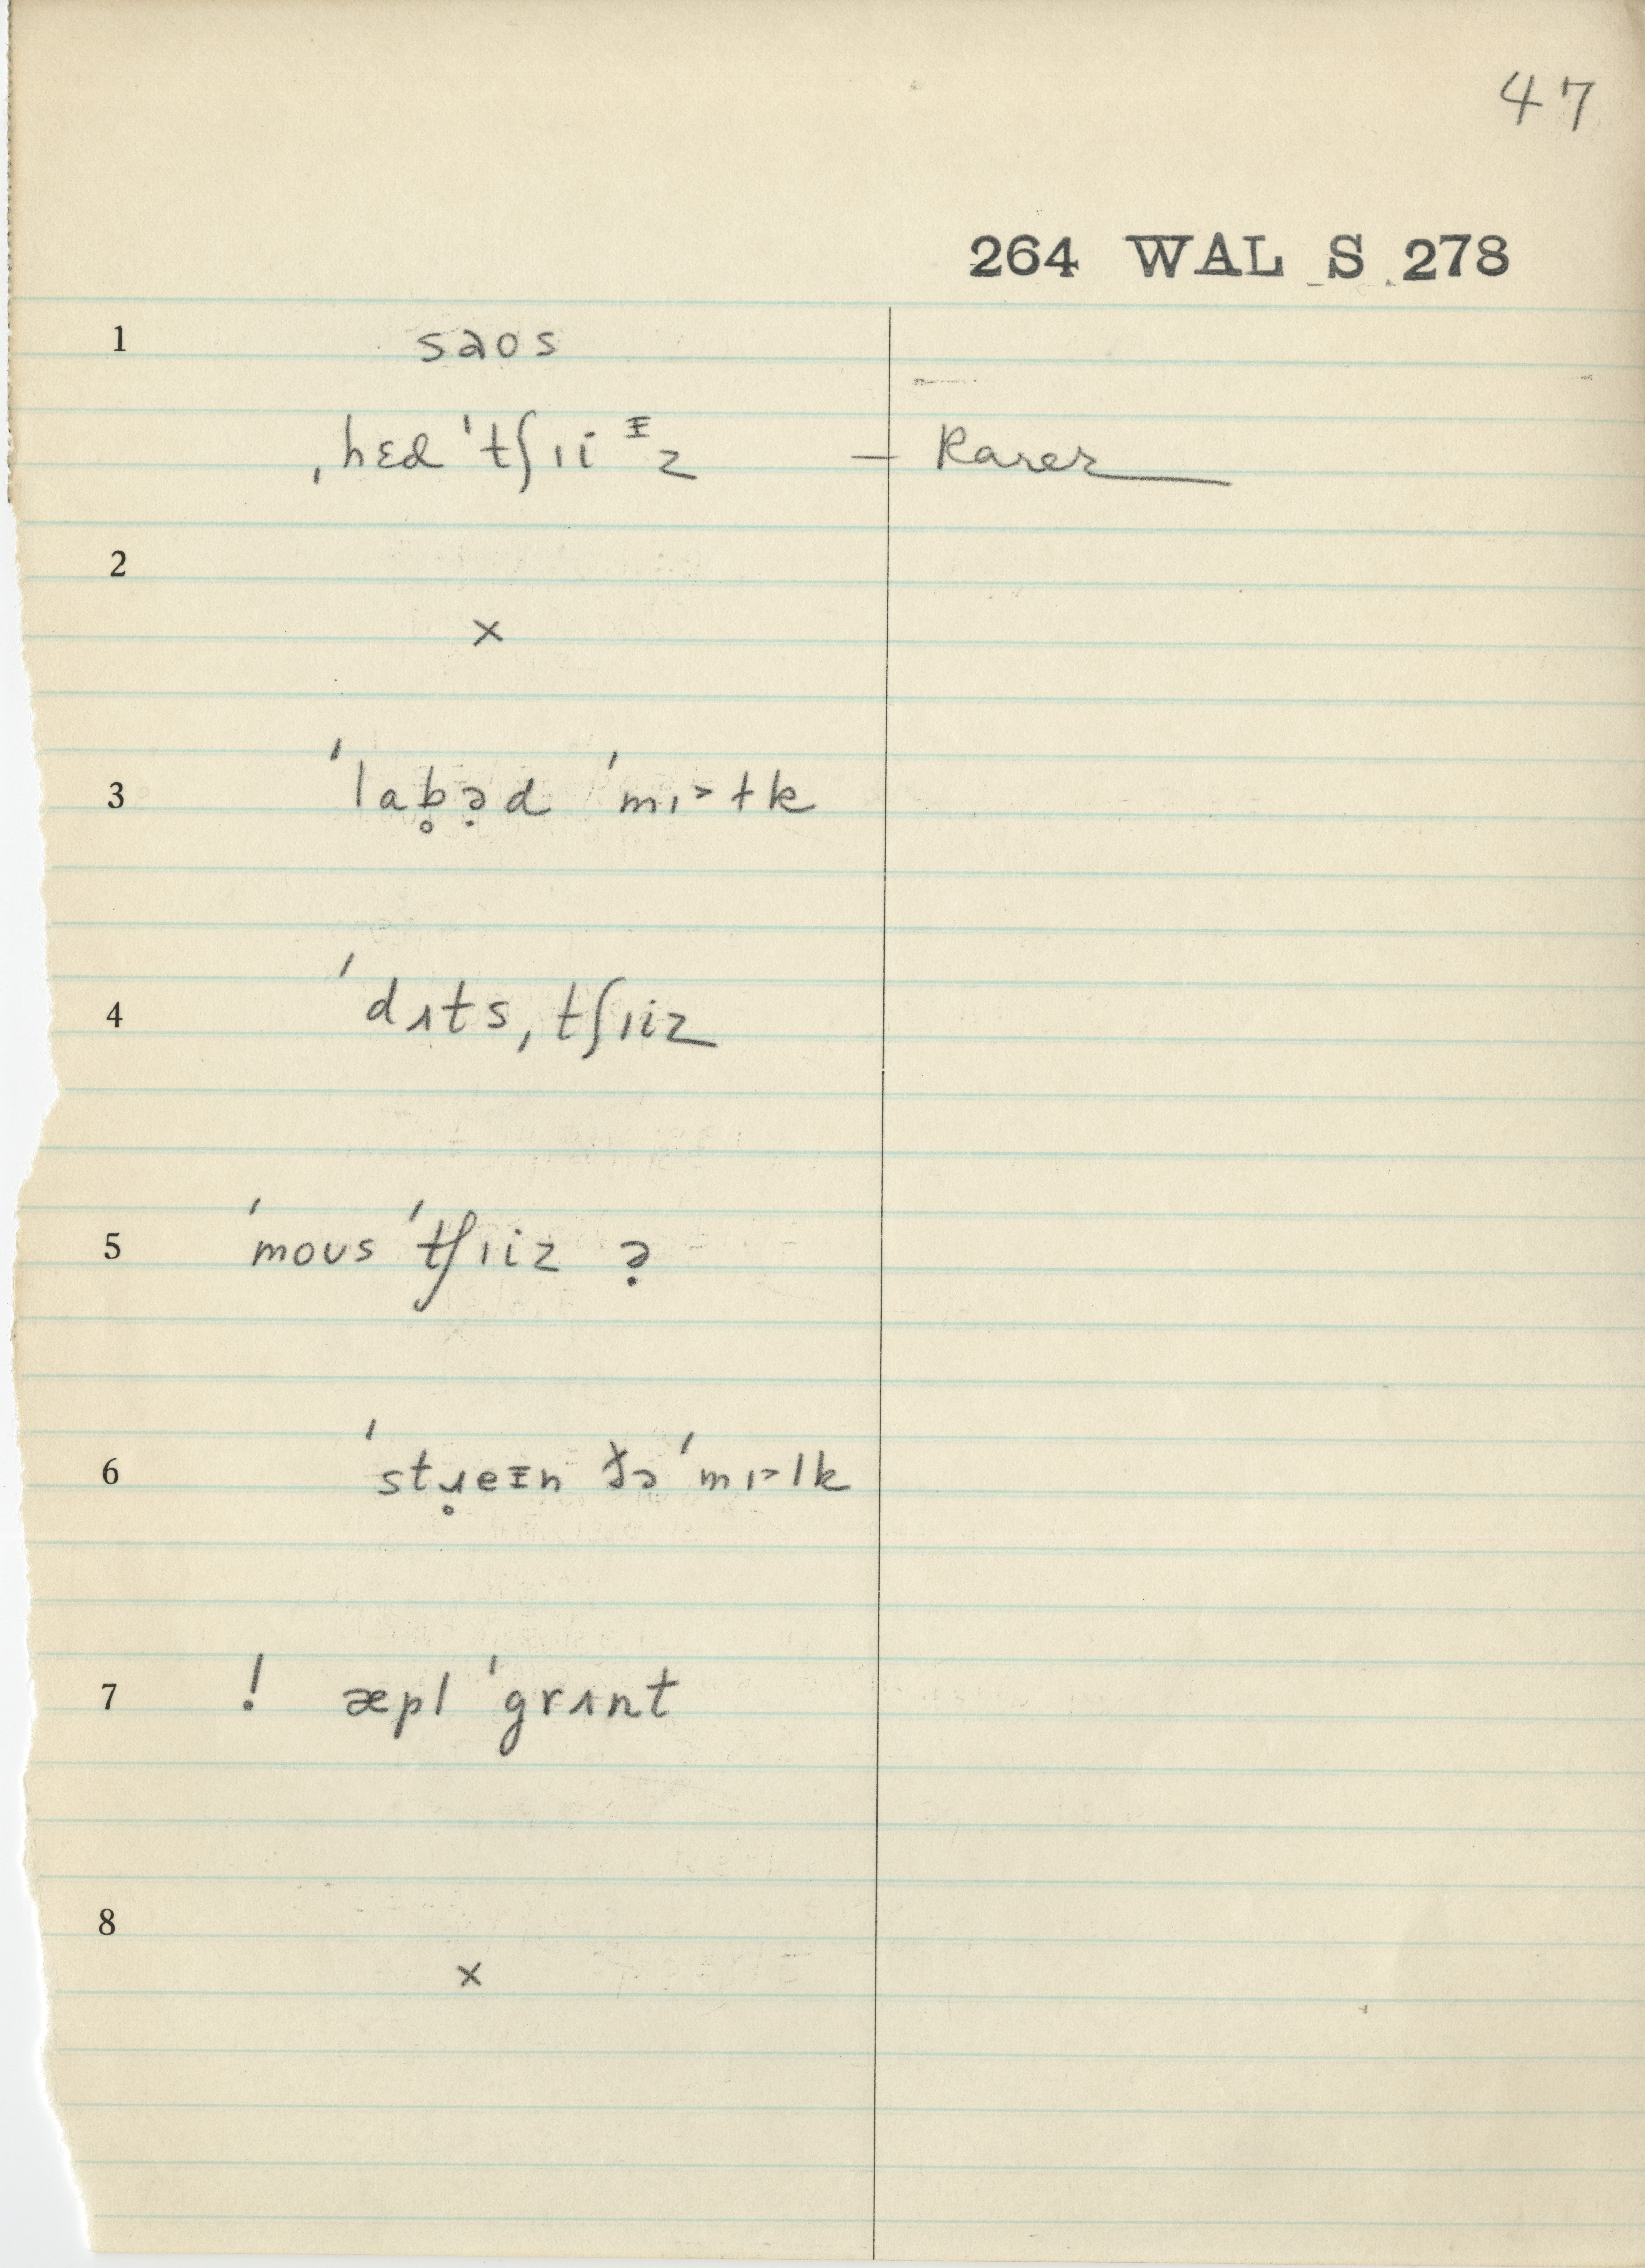 47
264 WAL S 278
1 saos
ˌhɛd ˈtʃɪi ᵻz — Rarer
2
×
3 ˈlab̥ə̣d ˈmɪ˃ɫk
4 ˈdʌtsˌtʃɪiz
5 ˈmoʊs ˈtʃɪiz ə̣
6 ˈstɹ̥eᵻn ðə ˈmɪ˃lk
7 ! æpl ˈgrʌnt
8
×